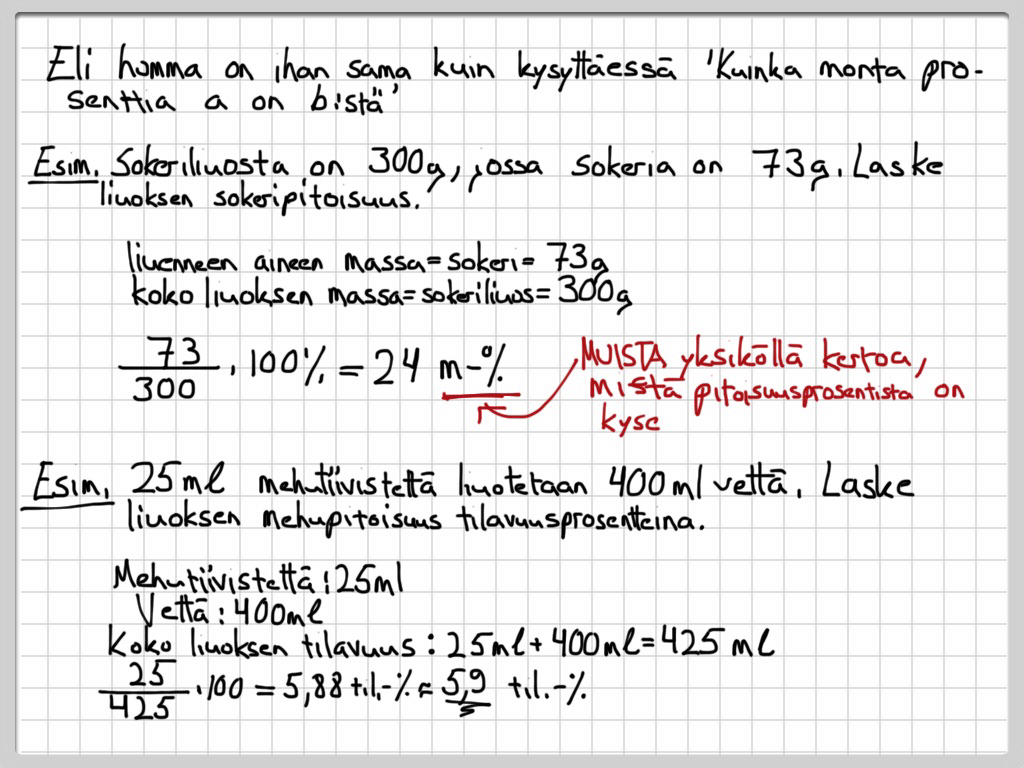 Eli homma on ihan sama kuin kysyttäessä 'Kuinka monta pro-
senttia a on b:stä'
Esim. Sokeriliuosta on 300g, jossa sokeria on 73g. Laske
liuoksen sokeripitoisuus.
liuenneen aineen massa=sokeri= 73g
koko liuoksen massa=sokeriliuos= 300g
73/300 · 100% = 24 m-%
MUISTA yksiköllä kertoa,
mistä pitoisuusprosentista on
kyse
Esim. 25ml mehutiivistettä liuotetaan 400ml vettä. Laske
liuoksen mehupitoisuus tilavuusprosentteina.
Mehutiivistettä: 25ml
Vettä: 400ml
Koko liuoksen tilavuus: 25ml + 400ml = 425 ml
25/425 · 100 = 5,88 til.-% ≈ 5,9 til.-%